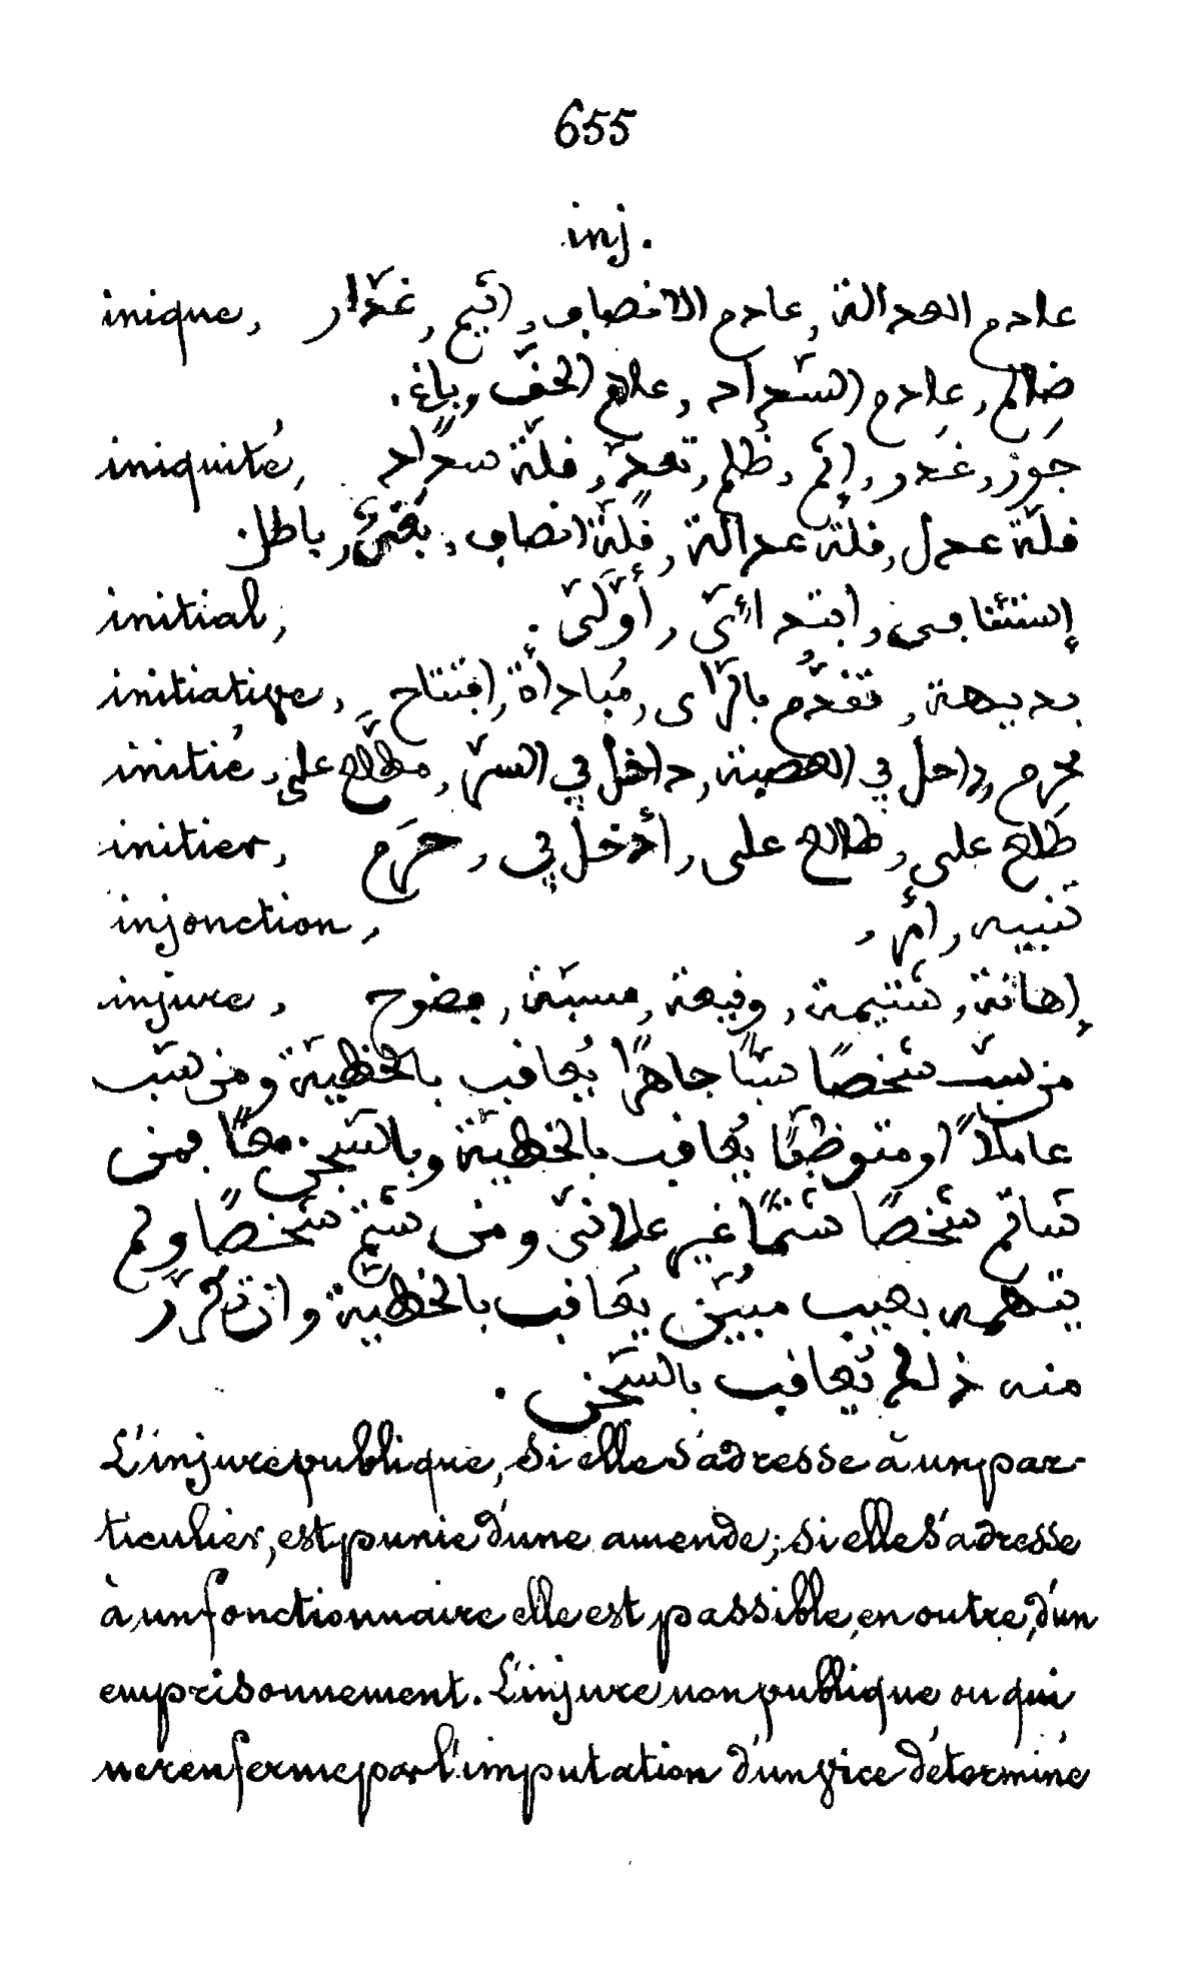 655
inj.
inique, عادم العدالة, عادم الانصاف, اثيم, غدّار
ظالم, عادم السّداد, عادم الحقّ, باغ.
iniquité, جَوْر, غَدر, إثم, ظُلم, تعدّ, قلّة سداد
قلّة عدل, قلّة عدالة, قلّة انصاف, باطل.
initial, إستئنافى, ابتدائىّ, أوّلىّ.
initiative, بديهة, تقدُّم بالرّاى, مُبادأة, افتتاح
initié, محرم, داخل في العصبة, داخل في السرّ, مطّلع على,
initier, طَلع على, طالع على, أدخل في, حرَم
injonction, تنبيه, أمر,
injure, إهانة, شتيمة, وقيعة, مسبّة, فضوح
من سبّ شخصًا سبًّا جاهرًا يُعاقب بالخطيّة ومن سبّ
عاملاً او متوظفًا يُعاقب بالخطيّة وبالسّجن معًا فمن
شاتم شخصًا شتمًا غير علانىّ ومن شتم شخصًا ولم
يتهمه بعيب مبيّن يُعاقب بالخطيّة وان تكرّر
منه ذلك يُعاقب بالسّجن.
L'injure publique, si elle s'adresse à un par-
ticulier, est punie d'une amende; si elle s'adresse
à un fonctionnaire elle est passible, en outre, d'un
emprisonnement. L'injure non publique ou qui
ne renferme par l'imputation d'un vice déterminé